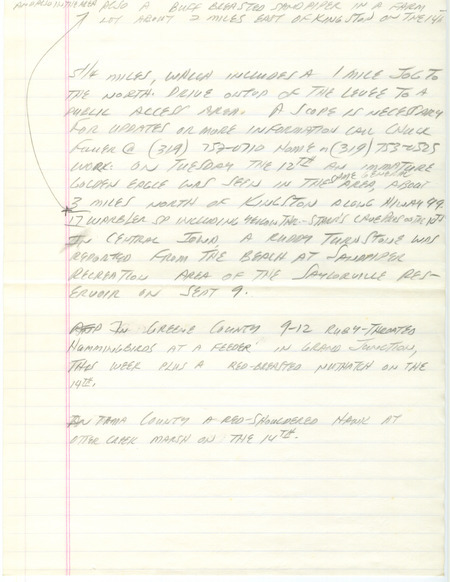 ALSO A BUFF BREASTED SANDPIPER IN A FARM
LOT ABOUT 2 MILES EAST OF KINGSTON ON THE 14th
5 1/2 MILES, WHICH INCLUDES A 1 MILE JOG TO
THE NORTH. DRIVE ONTOP OF THE LEVEE TO A
PUBLIC ACCESS AREA. A SCOPE IS NECESSARY
FOR UPDATES OR MORE INFORMATION CALL CHUCK
FULLER @ (319) 753-0710 HOME or (319) 753-
WORK. ON TUESDAY THE 12TH AN IMMATURE
SAME GENERAL
GOLDEN EAGLE WAS SEEN IN THE AREA, ABOUT
3 MILES NORTH OF KINGSTON ALONG HIWAY 99.
17 WARBLER SP INCLUDING
IN CENTRAL IOWA, A RUDDY TURNSTONE WAS
REPORTED FROM THE BEACH AT SANDPIPER
RECREATION AREA OF THE SAYLORVILLE RES-
ERVOIR ON SEPT 9.
IN GREENE COUNTY 9-12 RUBY-THROATED
HUMMINGBIRDS AT A FEEDER IN GRAND JUNCTION,
THIS WEEK PLUS A RED-BREASTED NUTHATCH ON THE
14TH.
IN TAMA COUNTY A RED-SHOULDERED HAWK AT
OTTER CREEK MARSH ON THE 14TH.